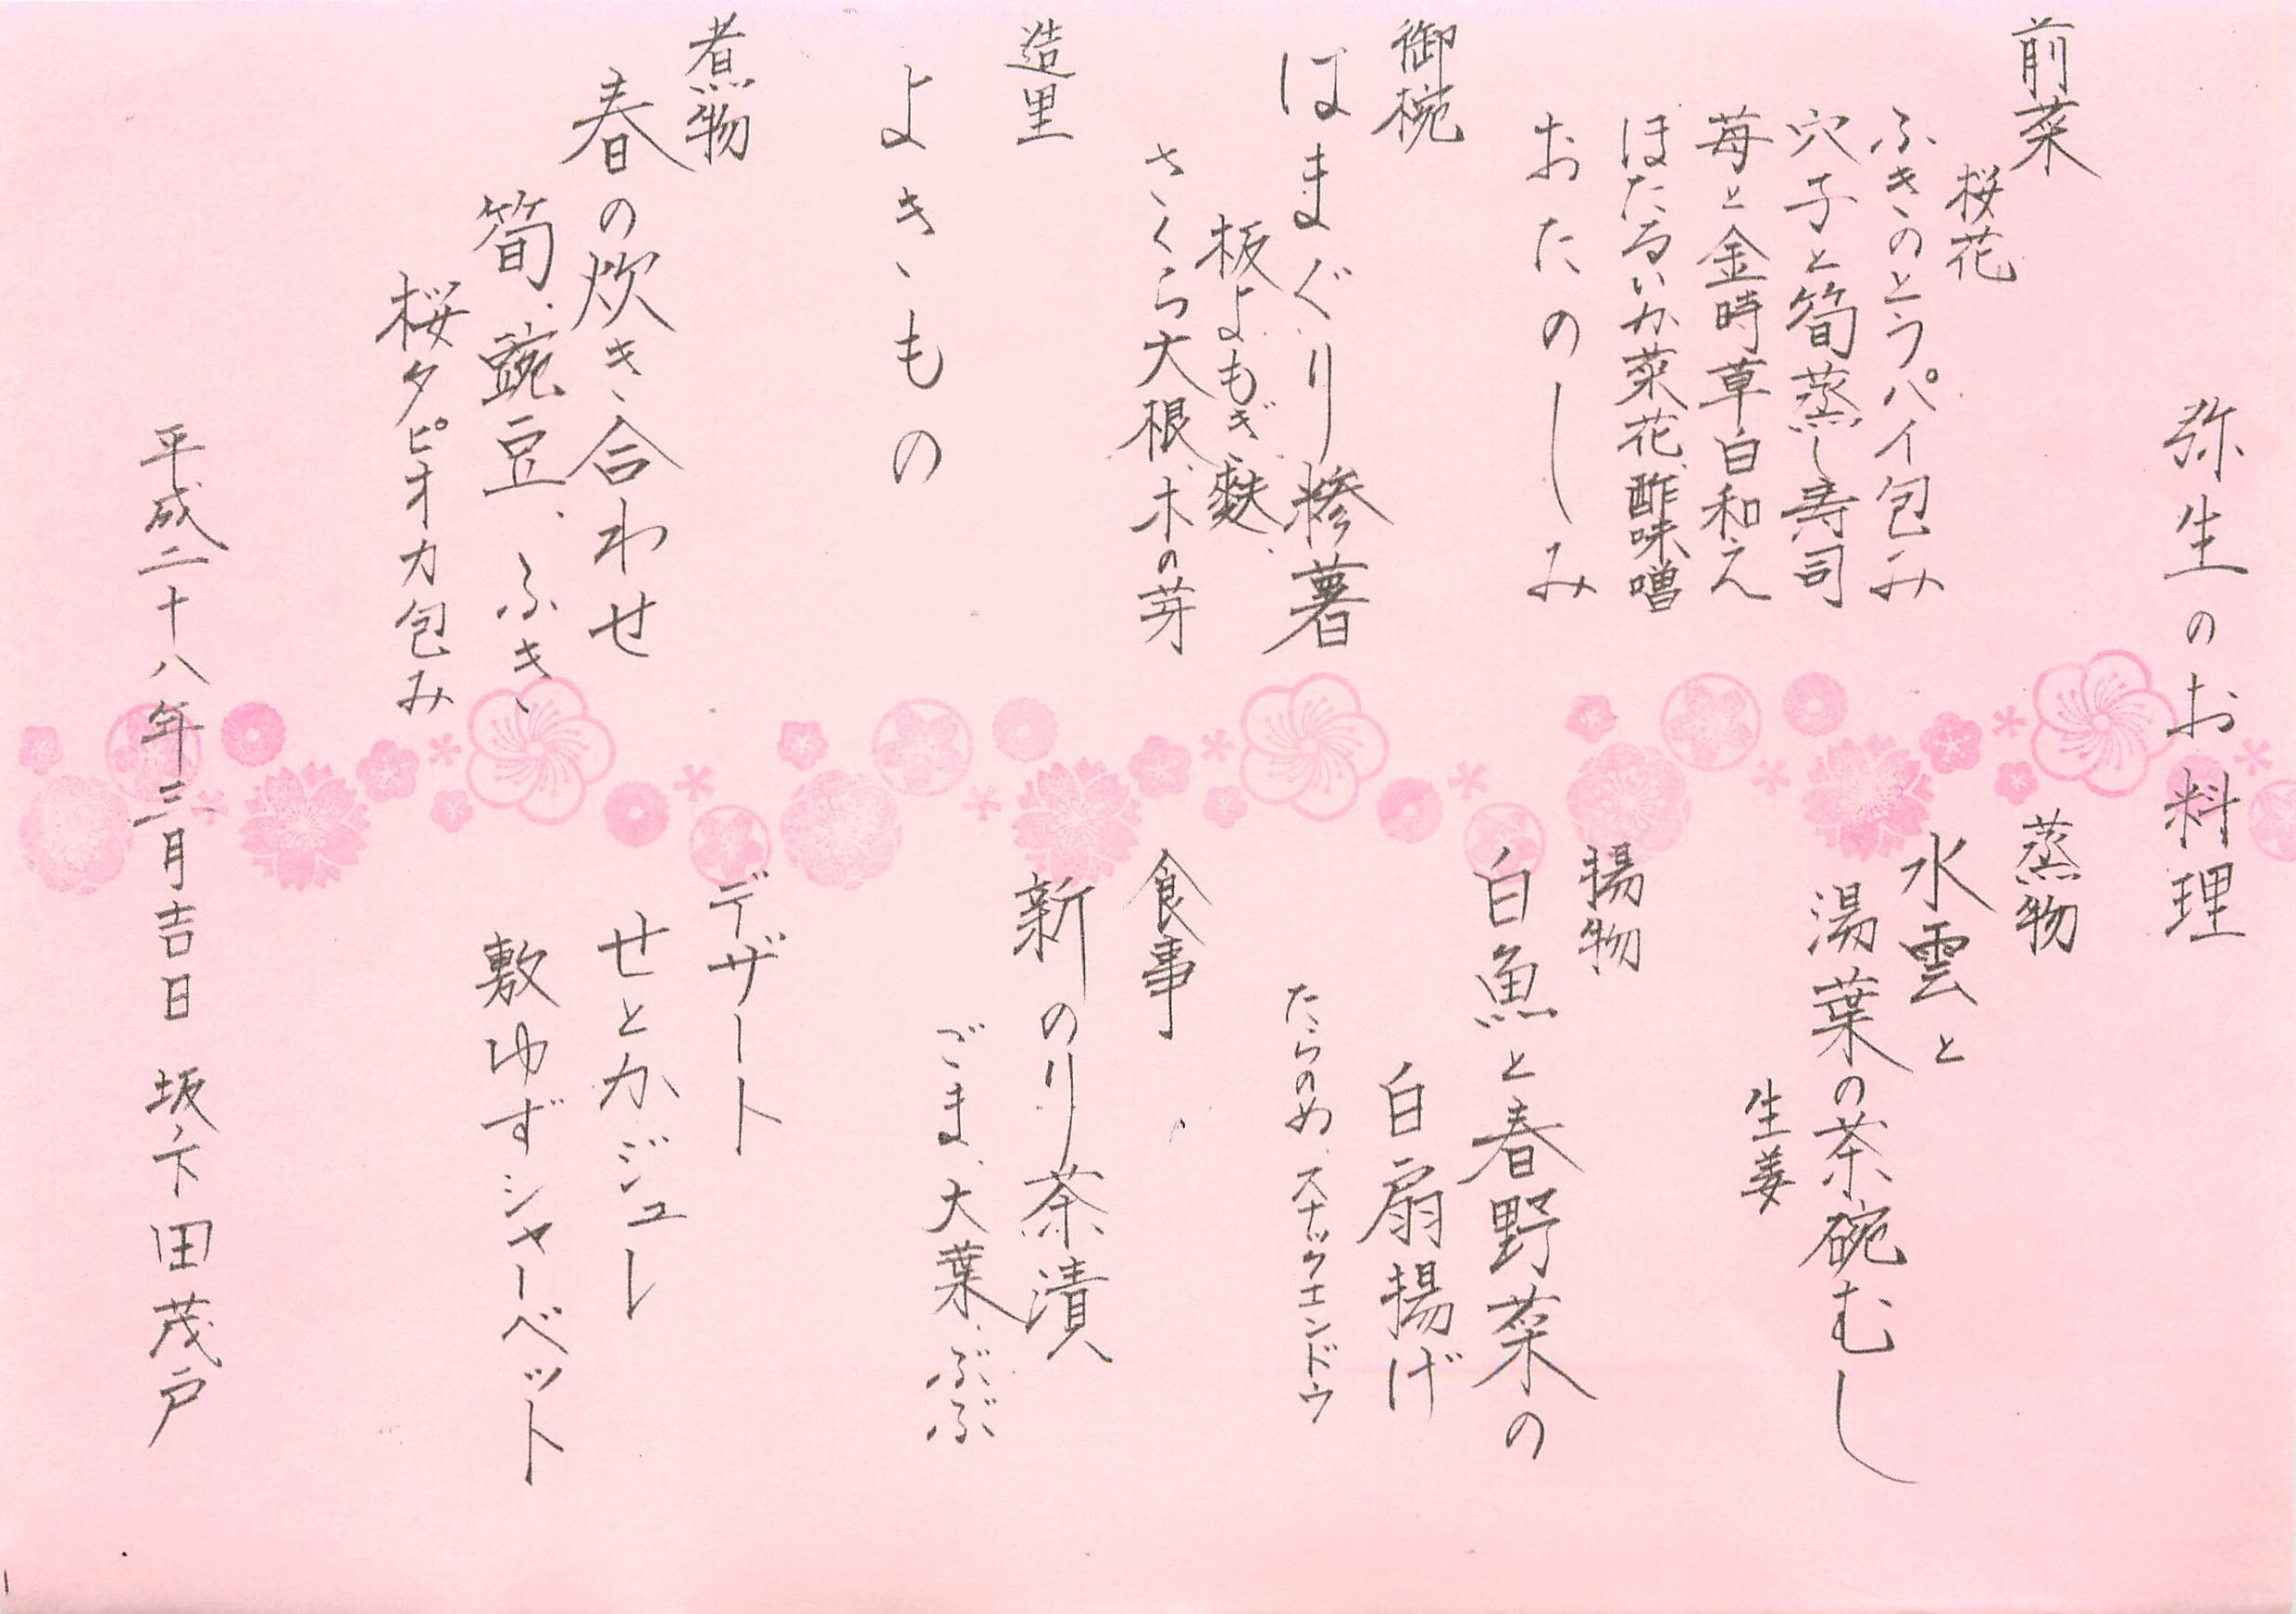 弥生のお料理
前菜
桜花
ふきのとうパイ包み
穴子と筍蒸し寿司
苺と金時草白和え
ほたるいか菜花酢味噌
おたのしみ
御椀
はまぐり糝薯
板よもぎ麩、
さくら大根、木の芽
造里
よきゝもの
煮物
春の炊き合わせ
筍、豌豆、ふき、
桜タピオカ包み
蒸物
水雲と
湯葉の茶碗むし
生姜
揚物
白魚と春野菜の
白扇揚げ
たらのめ、スナックエンドウ
食事
新のり茶漬
ごま、大葉、ぶぶ
デザート
せとかジュレ
敷ゆずシャーベット
平成二十八年三月吉日 坂下田茂戸